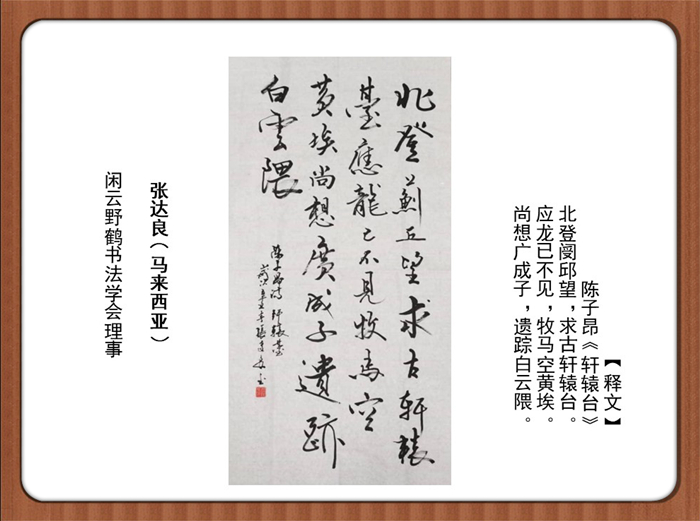 【释文】
陈子昂《轩辕台》
北登阌邱望，求古轩辕台。
应龙已不见，牧马空黄埃。
尚想广成子，遗踪白云隈。
北登薊丘望求古轩辕
臺應龍已不見牧馬空
黄埃尚想廣成子遺跡
白雲隈
陈子昂诗 轩辕臺
张达良（马来西亚）
闲云野鹤书法学会理事